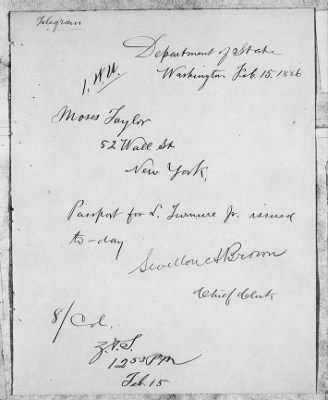 Telegram
Department of State
Washington Feb. 15, 1886
Moses Taylor
52 Wall St
New York,
Passport for L. Turnure Jr. issued
to-day
Sevellon A Brown
Chief Clerk
8/Col.
12 55 Pm
Feb 15